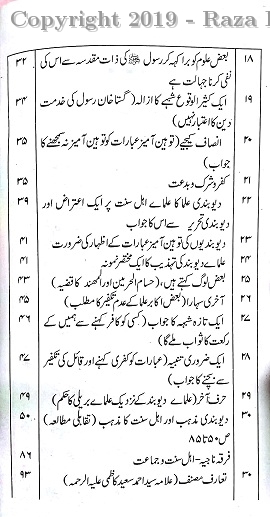 Copyright 2019 - Raza
۱۸ بعض علوم کو برا کہہ کر رسول ﷺ کی ذات مقدسہ سے اس کی ۳۲
نفی کرنا جہالت ہے
۱۹ ایک کثیر الوقوع شبہے کا ازالہ (گستاخان رسول کی خدمت ۳۴
دین کا اعتبار نہیں)
۲۰ انصاف کیجیے (توہین آمیز عبارات کو توہین آمیز نہ سمجھنے کا ۳۵
جواب)
۲۱ کفر و شرک و بدعت ۳۵
۲۲ دیوبندی علما کا علمائے اہل سنت پر ایک اعتراض اور ۳۹
دیوبندی تحریر سے اس کا جواب
۲۳ دیوبندیوں کی توہین آمیز عبارات کے اظہار کی ضرورت ۴۱
۲۴ علمائے دیوبند کی تہذیب کا ایک مختصر نمونہ ۴۱
۲۵ بعض لوگ کہتے ہیں، (حسام الحرمین اور المہند کا قضیہ) ۴۳
۲۶ آخری سہارا (بعض اکابر علما کے عدم تکفیر کا مطلب) ۴۵
۲۷ ایک تازہ شبہہ کا جواب (کسی کو کافر کہنے سے ہمیں کے ۴۶
رکعت کا ثواب ملے گا)
۲۸ ایک ضروری تنبیہ (عبارات کو کفری کہنے اور قائل کی تکفیر ۴۷
سے بچنے کا جواب)
۲۹ حرف آخر (علمائے دیوبند کے نزدیک علمائے بریلی کا حکم) ۴۹
۳۰ دیوبندی مذہب اور اہل سنت کا مذہب (تقابلی مطالعہ) ۵۰
ص ۵۰ تا ۸۵
فرقہ ناجیہ - اہل سنت و جماعت ۸۶
۳۰ تعارف مصنف (علامہ سید احمد سعید کاظمی علیہ الرحمہ) ۹۳